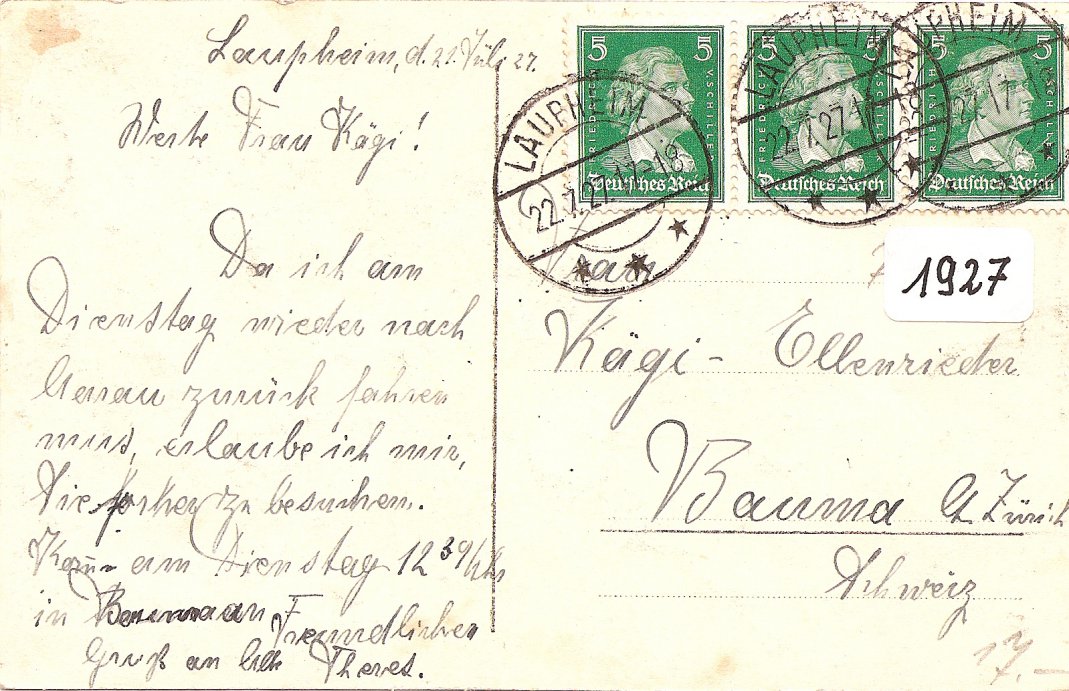 Laupheim, d. 21. Juli 27.
Werte Frau Kägi!
Da ich am
Dienstag wieder nach
zurück fahren
muss, erlaube ich mir,
Sie vorher zu besuchen.
Komm am Dienstag 12 39 Uhr
in Bauma an
Freundlichen
Gruß an alle Theres.
5 5
FRIEDRICH V. SCHILLER
Deutsches Reich
5
FRIEDRICH V. SCHILLER
Deutsches Reich
5
FRIEDRICH V. SCHILLER
Deutsches Reich
LAUPHEIM
22.7.27.17-18
LAUPHEIM
22.7.27.17
LAUPHEIM
22.7.27.17
1927
Frau
Kägi-Ellenrieder
Bauma Ct Zürich
Schweiz
17.–